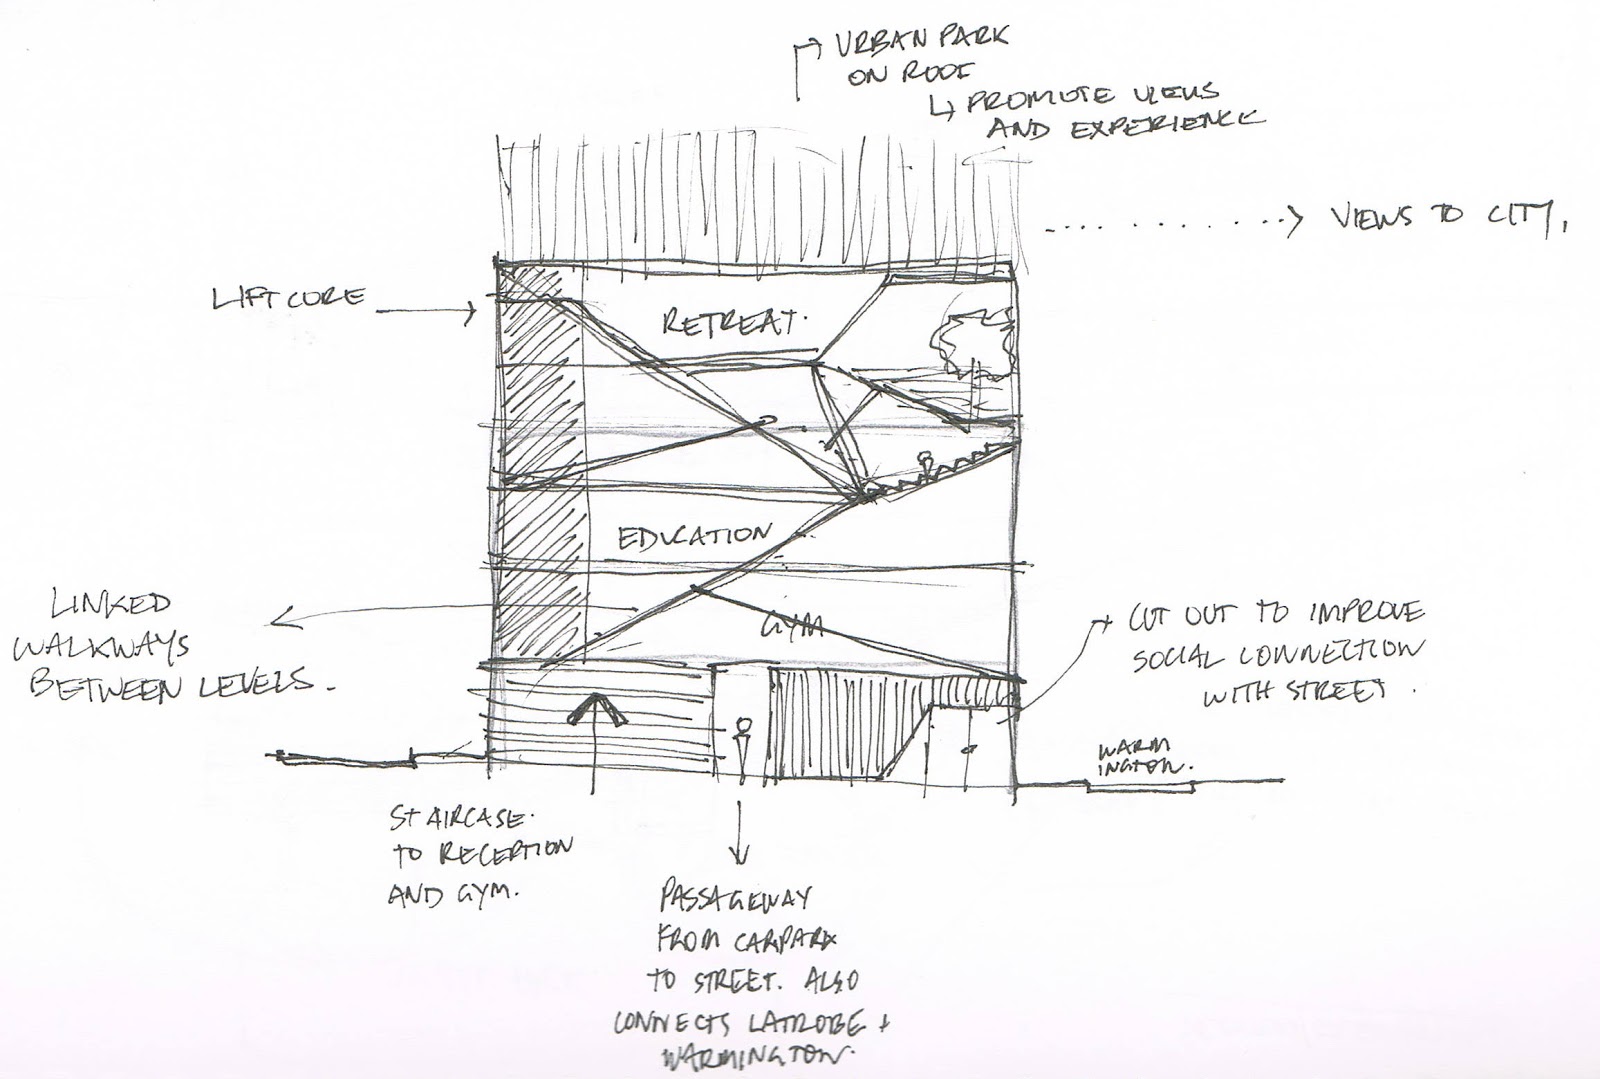 URBAN PARK
ON ROOF
PROMOTE VIEWS
AND EXPERIENCE
VIEWS TO CITY.
LIFT CORE
RETREAT.
EDUCATION
LINKED
WALKWAYS
BETWEEN LEVELS.
GYM
CUT OUT TO IMPROVE
SOCIAL CONNECTION
WITH STREET.
WARM
INGTON.
STAIRCASE.
TO RECEPTION
AND GYM.
PASSAGEWAY
FROM CARPARK
TO STREET. ALSO
CONNECTS LATROBE +
WARMINGTON.